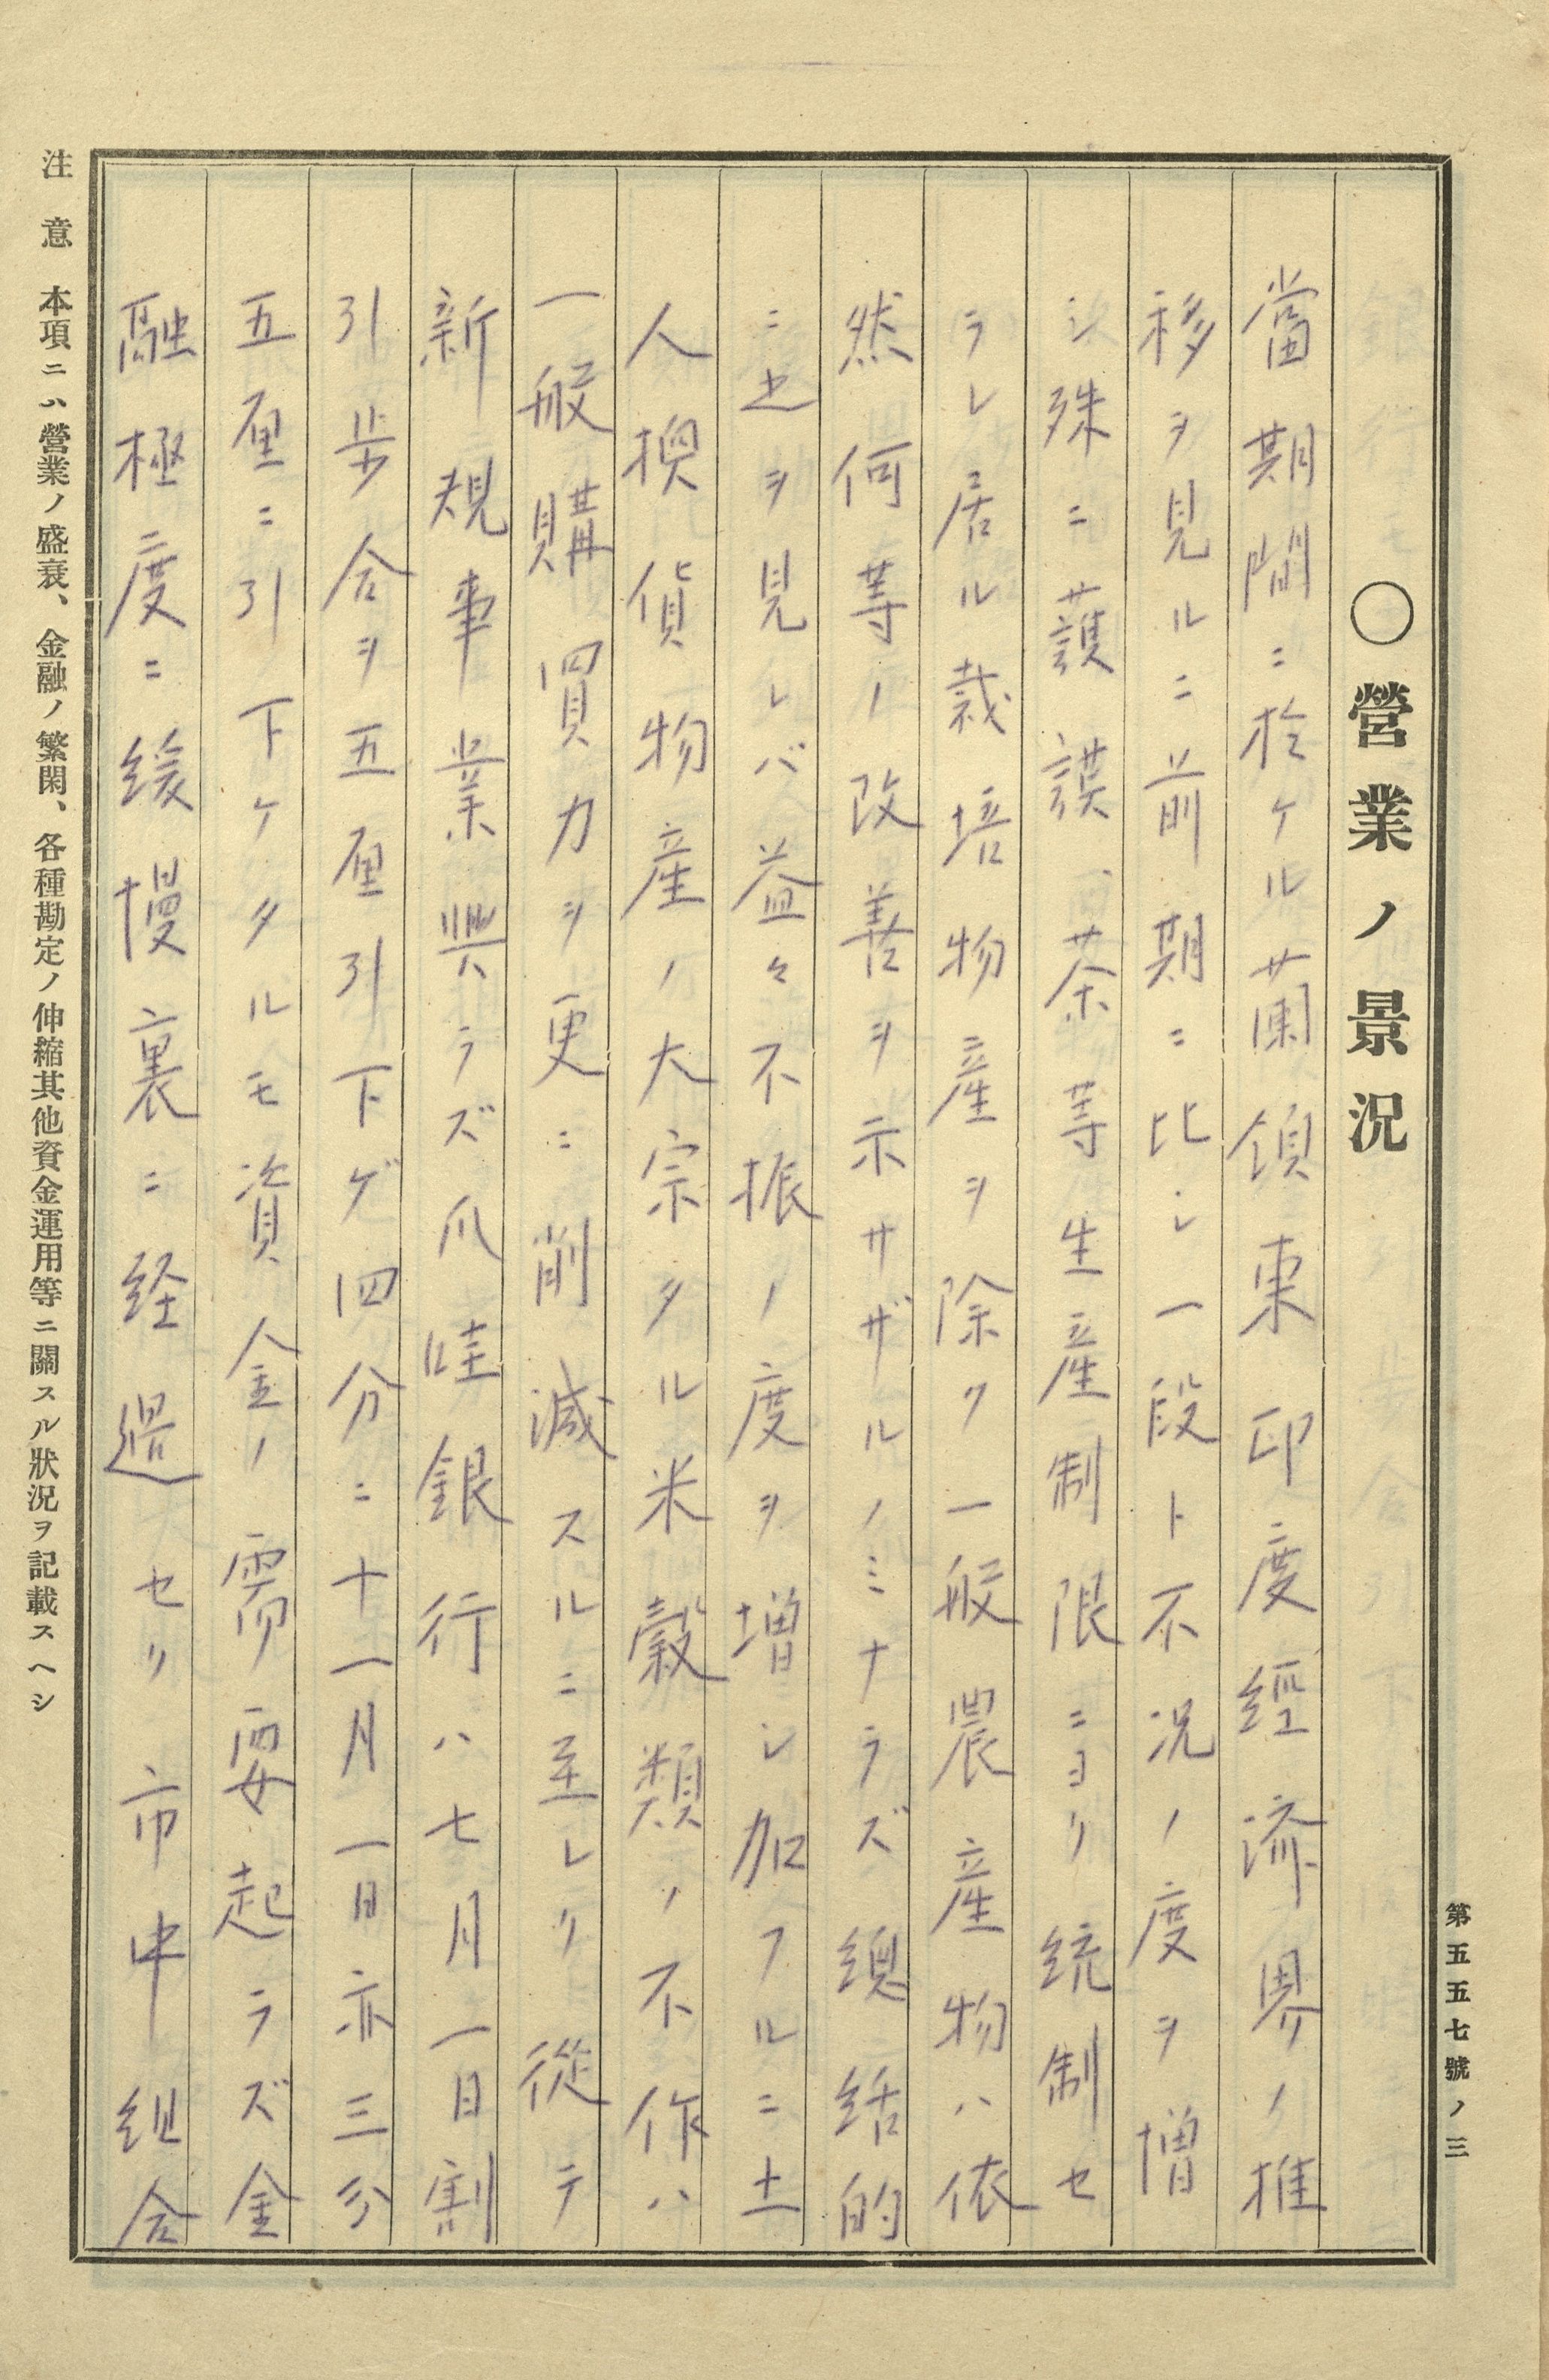 第五五七號ノ三
〇營業ノ景況
當期間ニ於ケル蘭領東印度經済界ノ推
移ヲ見ルニ前期ニ比シ一段ト不況ノ度ヲ増
シ殊ニ護謨、茶等生産制限ニヨリ統制セ
ラレ居ル栽培物産ヲ除ク一般農産物ハ依
然何等ノ改善ヲ示サザルノミナラズ総括的
ニ之ヲ見レバ益々不振ノ度ヲ増シ加フルニ土
人換貨物産ノ大宗タル米穀類ノ不作ハ
一般購買力ヲ更ニ削減スルニ至レリ從テ
新規事業興ラズ爪哇銀行ハ七月一日割
引歩合ヲ五厘引下ゲ四分ニ十一月一日亦三分
五厘ニ引下ケタルモ資金ノ需要起ラズ金
融極度ニ緩慢裏ニ経過セリ市中組合
注意 本項ニハ營業ノ盛衰、金融ノ繁閑、各種勘定ノ伸縮其他資金運用等ニ關スル狀況ヲ記載スヘシ